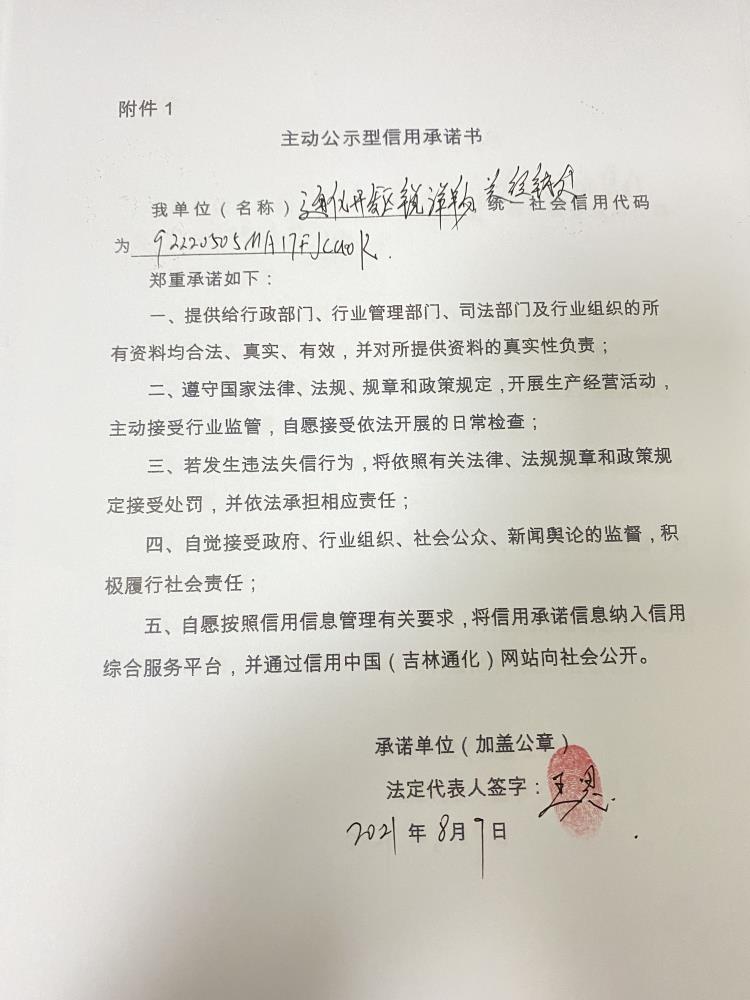 附件1
主动公示型信用承诺书
我单位（名称）通化开发区锐洋 统一社会信用代码
为 92220505MA17FJCU0R.
郑重承诺如下：
一、提供给行政部门、行业管理部门、司法部门及行业组织的所
有资料均合法、真实、有效，并对所提供资料的真实性负责；
二、遵守国家法律、法规、规章和政策规定，开展生产经营活动，
主动接受行业监管，自愿接受依法开展的日常检查；
三、若发生违法失信行为，将依照有关法律、法规规章和政策规
定接受处罚，并依法承担相应责任；
四、自觉接受政府、行业组织、社会公众、新闻舆论的监督，积
极履行社会责任；
五、自愿按照信用信息管理有关要求，将信用承诺信息纳入信用
综合服务平台，并通过信用中国（吉林通化）网站向社会公开。
承诺单位（加盖公章）
法定代表人签字：王恩
2021年8月7日